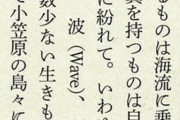 るものは海流に乗
を持つものは自
に紛れて。いわば
波（Wave）、
数少ない生きも
小笠原の島々に